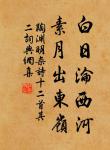 白日淪西河
素月出東嶺
陶渊明杂詩十二首其
二詞典網集